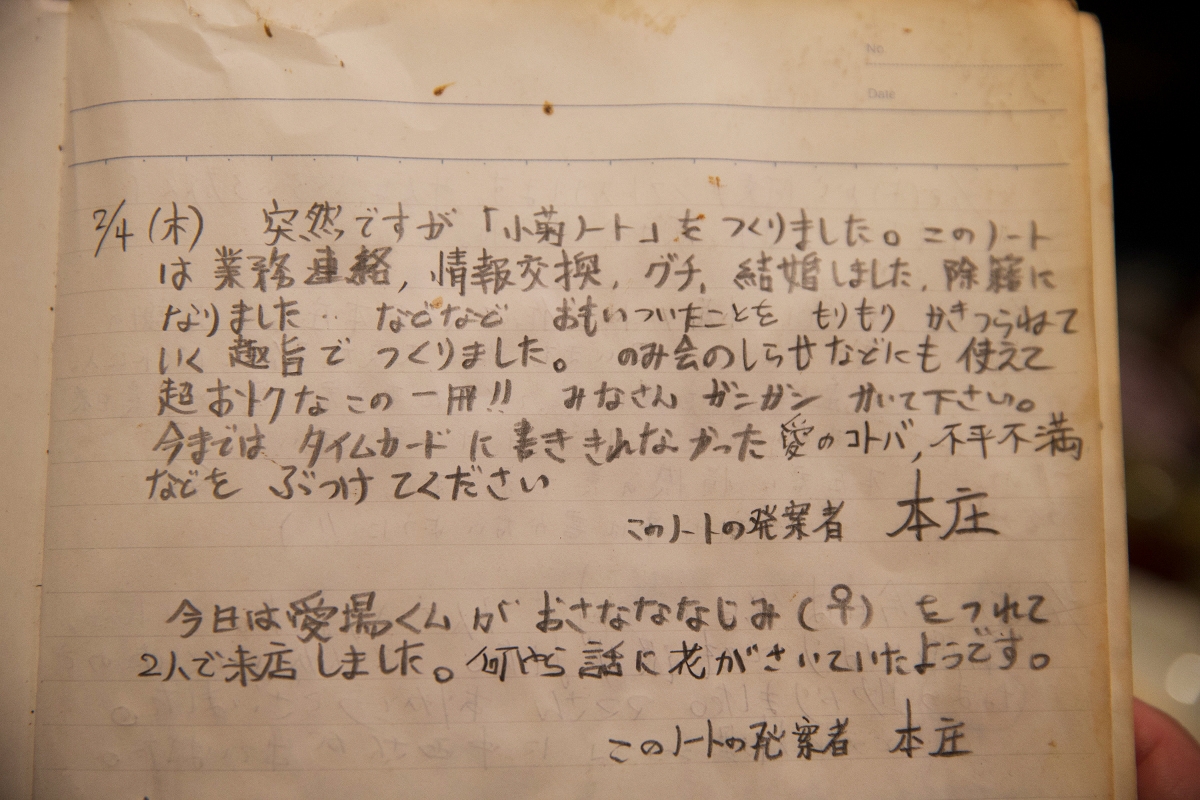 No.
Date
2/4 (木) 突然ですが「小菊ノート」を つくりました。このノート
は 業務連絡, 情報交換, グチ, 結婚しました, 除籍に
なりました‥ などなど おもいついたことを もりもり かきつらねて
いく 趣旨で つくりました。 のみ会のしらせなどにも 使えて
超おトクな この 一冊!! みなさん ガンガン かいて下さい。
今までは タイムカード に 書ききれなかった 愛のコトバ, 不平不満
などを ぶつけてください
このノートの発案者 本庄
今日は愛場くんが おさなななじみ(♀) をつれて
2人で来店しました。何やら 話に花がさいていたようです。
このノートの発案者 本庄